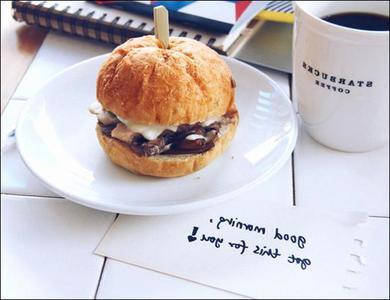 STARBUCKS
COFFEE
good morning,
got this for you!